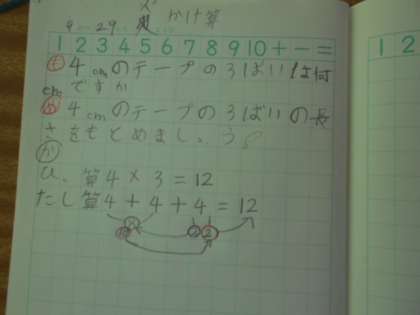 9 29 かけ算
1 2 3 4 5 6 7 8 9 10 + − =
も 4cmのテープの3ばいは何
cmですか
め 4cmのテープの3ばいの長
さをもとめましょう。
か
ひっ算 4 × 3 = 12
たし算 4 + 4 + 4 = 12
1 2